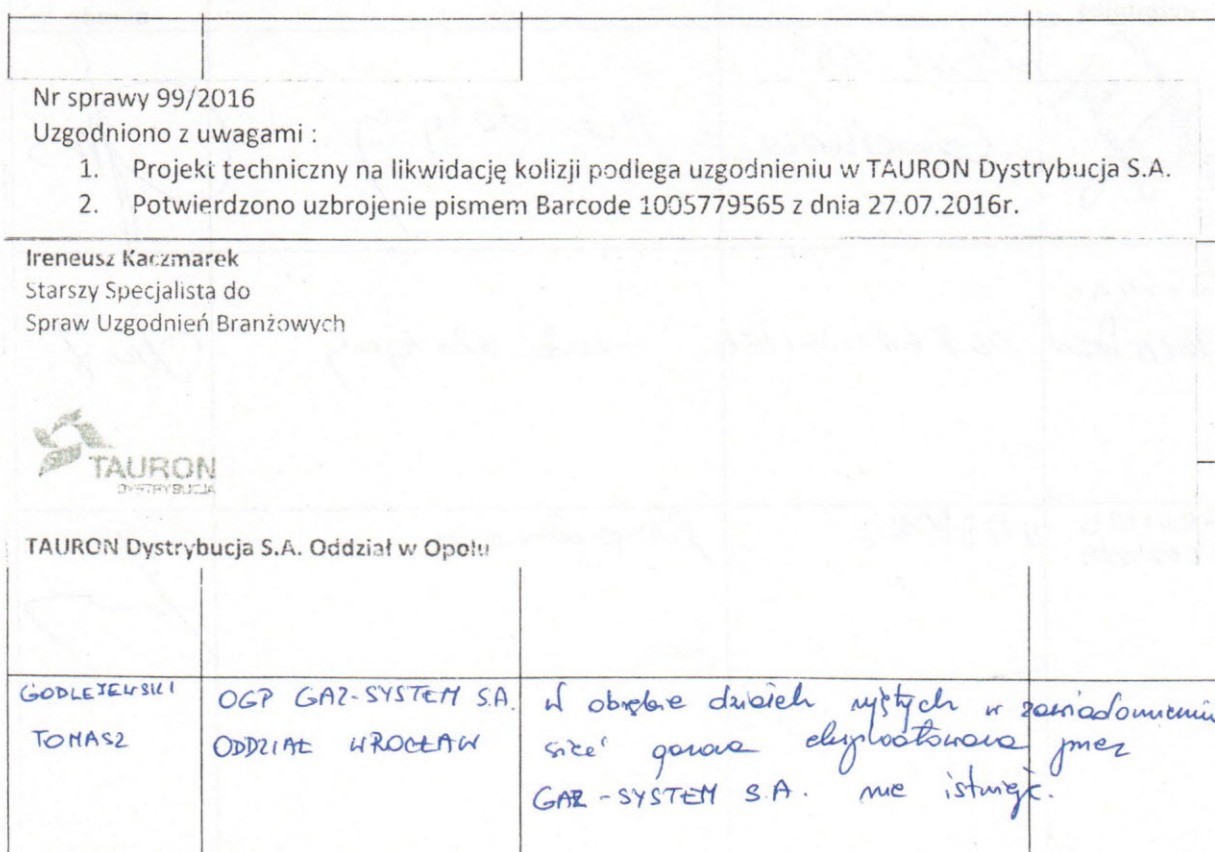 Nr sprawy 99/2016
Uzgodniono z uwagami :
1. Projekt techniczny na likwidację kolizji podlega uzgodnieniu w TAURON Dystrybucja S.A.
2. Potwierdzono uzbrojenie pismem Barcode 1005779565 z dnia 27.07.2016r.
Ireneusz Kaczmarek
Starszy Specjalista do
Spraw Uzgodnień Branżowych
TAURON
DYSTRYBUCJA
TAURON Dystrybucja S.A. Oddział w Opolu
GODLEJEWSKI
TOMASZ
OGP GAZ-SYSTEM S.A.
ODDZIAŁ WROCŁAW
W obrębie działek w zawiadomieniu
sieć gazowa eksploatowana przez
GAZ-SYSTEM S.A. nie istnieje.